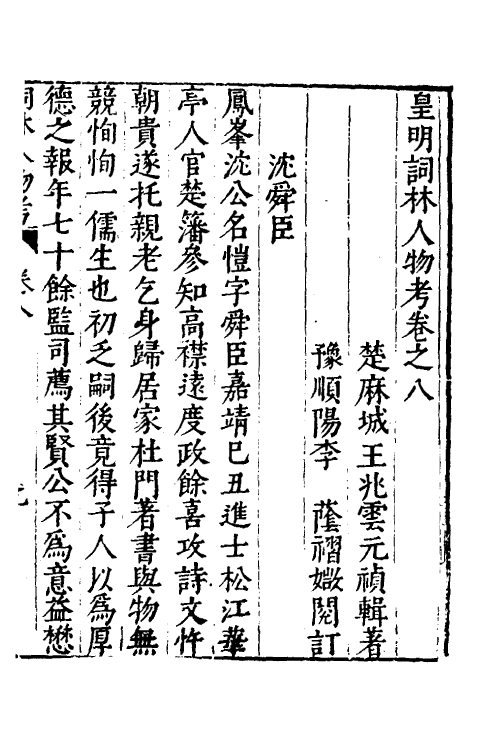 皇明詞林人物考卷之八
楚麻城王兆雲元禎輯著
豫順陽李 蔭襲嬍閱訂
沈舜臣
鳳峯沈公名愷字舜臣嘉靖己丑進士松江華
亭人官楚籓參知高襟遠度政餘喜攻詩文忤
朝貴遂托親老乞身歸居家杜門著書與物無
競恂恂一儒生也初乏嗣後竟得子人以為厚
德之報年七十餘監司薦其賢公不爲意益懋
詞林人物考 卷八